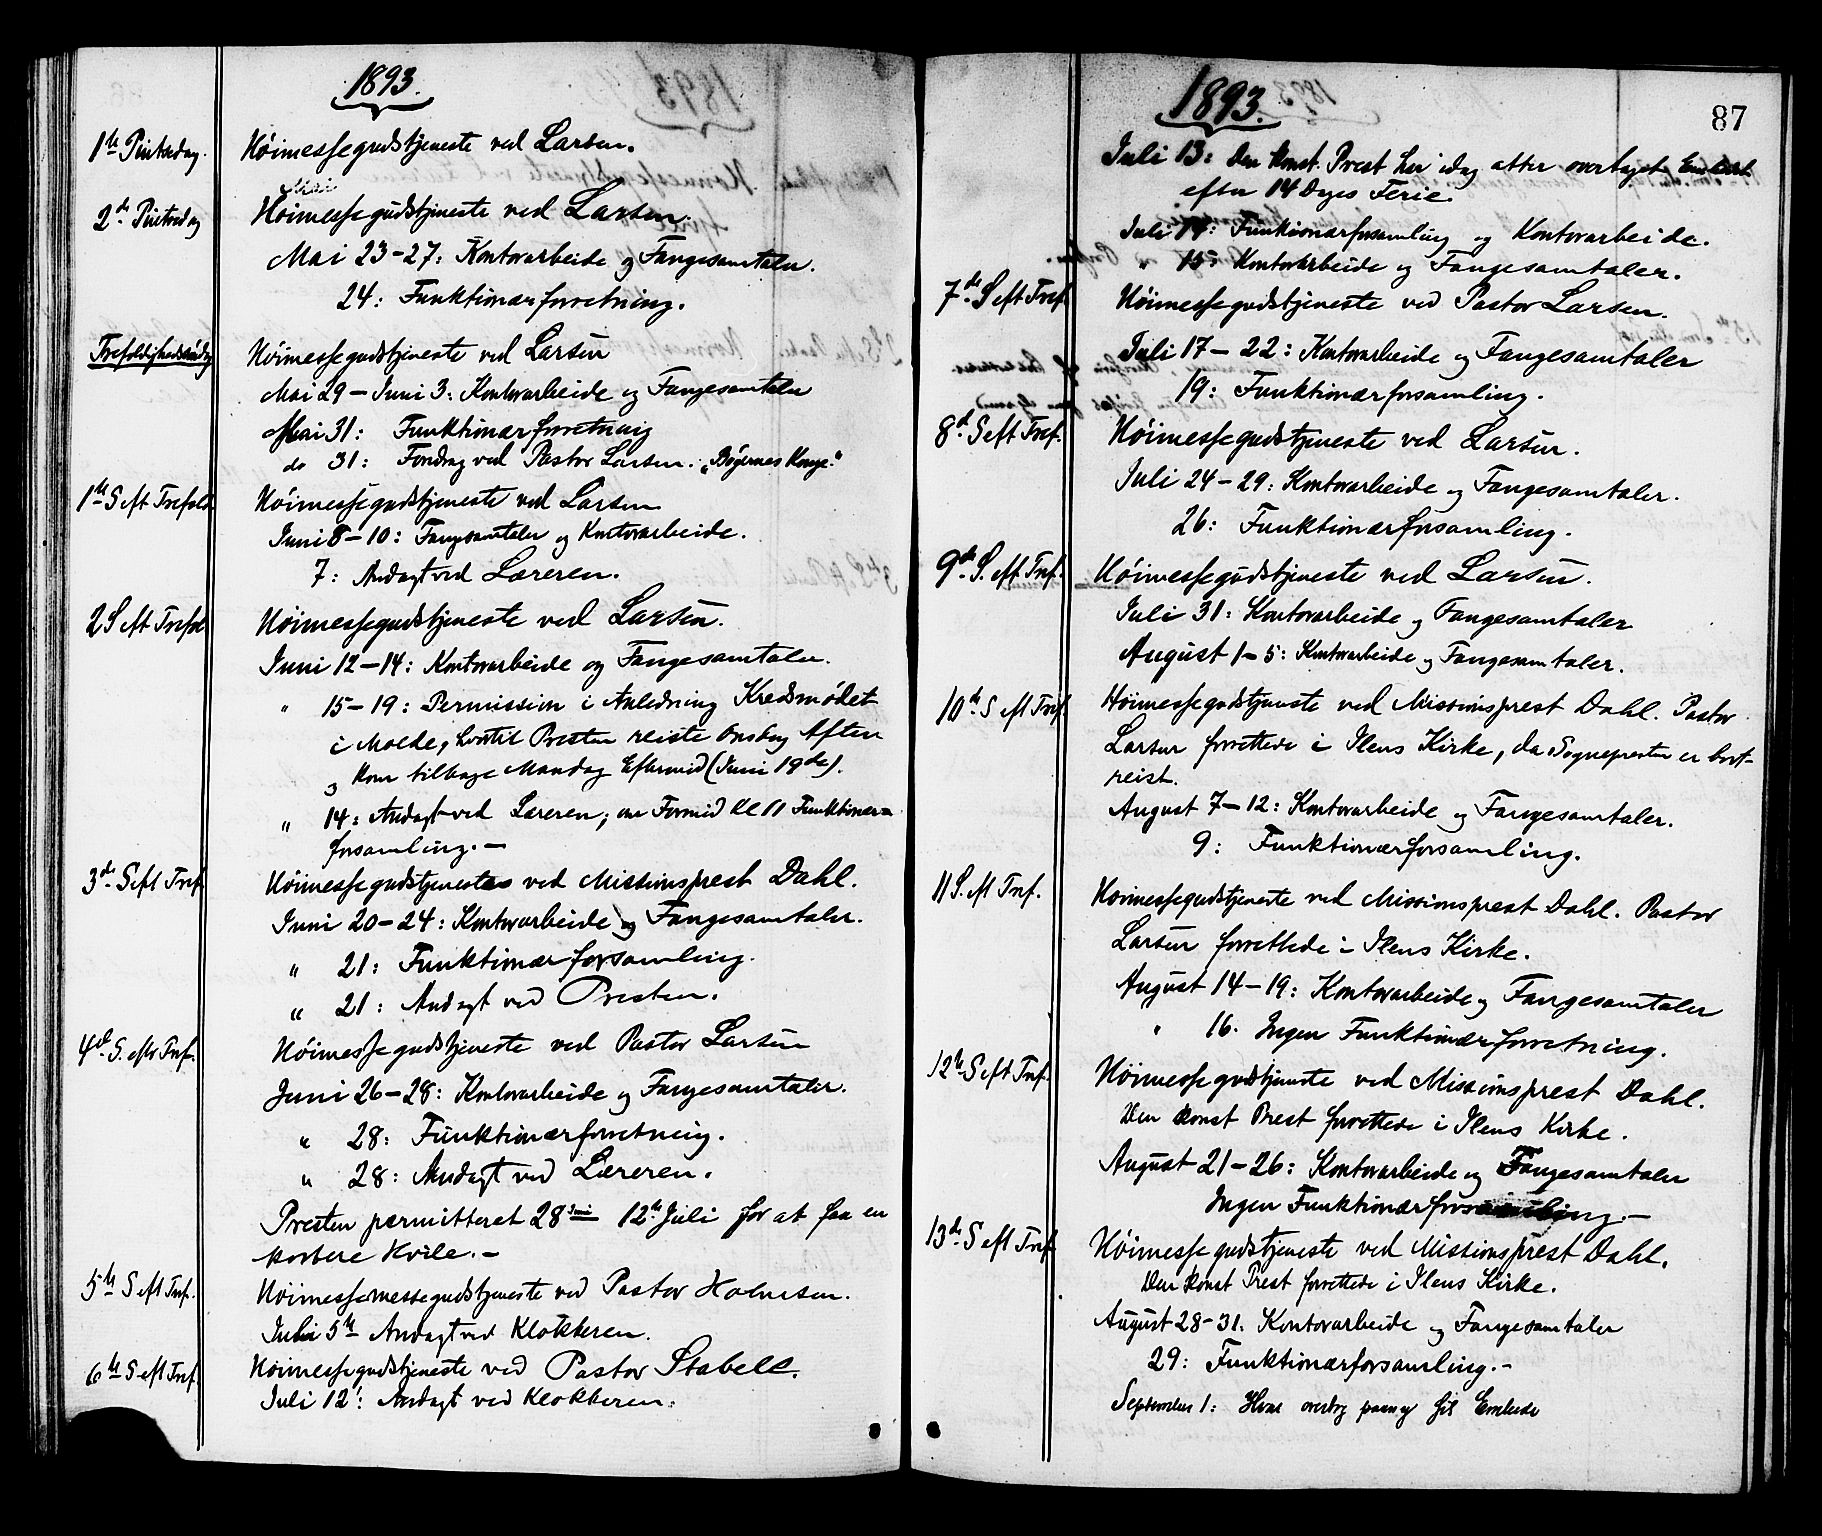 1893.
1ste Pintsedag. Höimessegudstjeneste ved Larsen.
Mai
2den Pintsedag Höimessegudstjeneste ved Larsen.
Mai 23-27: Kontorarbeide og Fangesamtaler.
24: Funktionærforretning.
Trefoldighedssöndag Höimessegudstjeneste ved Larsen
Mai 29 - Juni 3: Kontorarbeide og Fangesamtaler
Mai 31: Funktionærforretning
do 31: Foredrag ved Pastor Larsen: „Bögernes Konge."
1ste S eft Trefold. Höimessegudstjeneste ved Larsen
Juni 8-10: Fangesamtaler og Kontorarbeide.
7: Andagt ved Læreren.
2 S eft Trefol Höimessegudstjeneste ved Larsen.
Juni 12-14: Kontorarbeide og Fangesamtaler.
" 15-19: Permission i Anledning Kredsmödet
i Molde, hvortil Presten reiste Onsdag Aften
og kom tilbage Mandag Eftermid (Juni 19de).
" 14: Andagt ved Læreren; om Formid Kl 11 Funktionær=
forsamling. -
3de S eft Tref. Höimessegudstjeneste ved Missionsprest Dahl.
Juni 20-24: Kontorarbeide og Fangesamtaler.
" 21: Funktionærforsamling.
" 21: Andagt ved Presten.
4de S. eftr Tref. Höimessegudstjeneste ved Pastor Larsen
Juni 26-28: Kontorarbeide og Fangesamtaler.
" 28: Funktionærforretning.
" 28: Andagt ved Læreren.
Presten permitteret 28 Juni 12te Juli for at faa en
kortere Hvile. -
5te S eft Tref. Höimessemessegudstjeneste ved Pastor Halvorsen.
Juli 5te Andagt ved Klokkeren.
6te S eft Tref. Höimessegudstjeneste ved Pastor Stabell.
Juli 12: Andagt ved Klokkeren.
1893.
87
Juli 13: Den konst. Prest har idag atter overtaget Embedet
efter 14 Dages Ferie.
Juli 14: Funktionærforsamling og Kontorarbeide.
" 15: Kontorarbeide og Fangesamtaler.
7de S eft Tref. Höimessegudstjeneste ved Pastor Larsen.
Juli 17-22: Kontorarbeide og Fangesamtaler
19: Funktionærforsamling.
8de S eft Tref. Höimessegudstjeneste ved Larsen.
Juli 24-29: Kontorarbeide og Fangesamtaler.
26: Funktionærforsamling.
9de S. eft Tref. Höimessegudstjeneste ved Larsen.
Juli 31: Kontorarbeide og Fangesamtaler
August 1-5: Kontorarbeide og Fangesamtaler.
10de S eft Tref. Höimessegudstjeneste ved Missionsprest Dahl. Pastor
Larsen forrettede i Ilens Kirke, da Sognepresten er bort-
reist.
August 7-12: Kontorarbeide og Fangesamtaler.
9: Funktionærforsamling.
11 S. eft Tref. Höimessegudstjeneste ved Missionsprest Dahl. Pastor
Larsen forrettede i Ilens Kirke.
August 14-19: Kontorarbeide og Fangesamtaler
" 16. Ingen Funktionærforretning.
12te S eft Tref. Höimessegudstjeneste ved Missionsprest Dahl.
Den konst Prest forrettede i Ilens Kirke.
August 21-26: Kontorarbeide og Fangesamtaler
Ingen Funktionærforsamling. -
13de S eft Tref. Höimessegudstjeneste ved Missionsprest Dahl.
Den konst Prest forrettede i Ilens Kirke.
August 28-31. Kontorarbeide og Fangesamtaler
29: Funktionærforsamling. -
September 1: Hvas overtog paany sit Embede